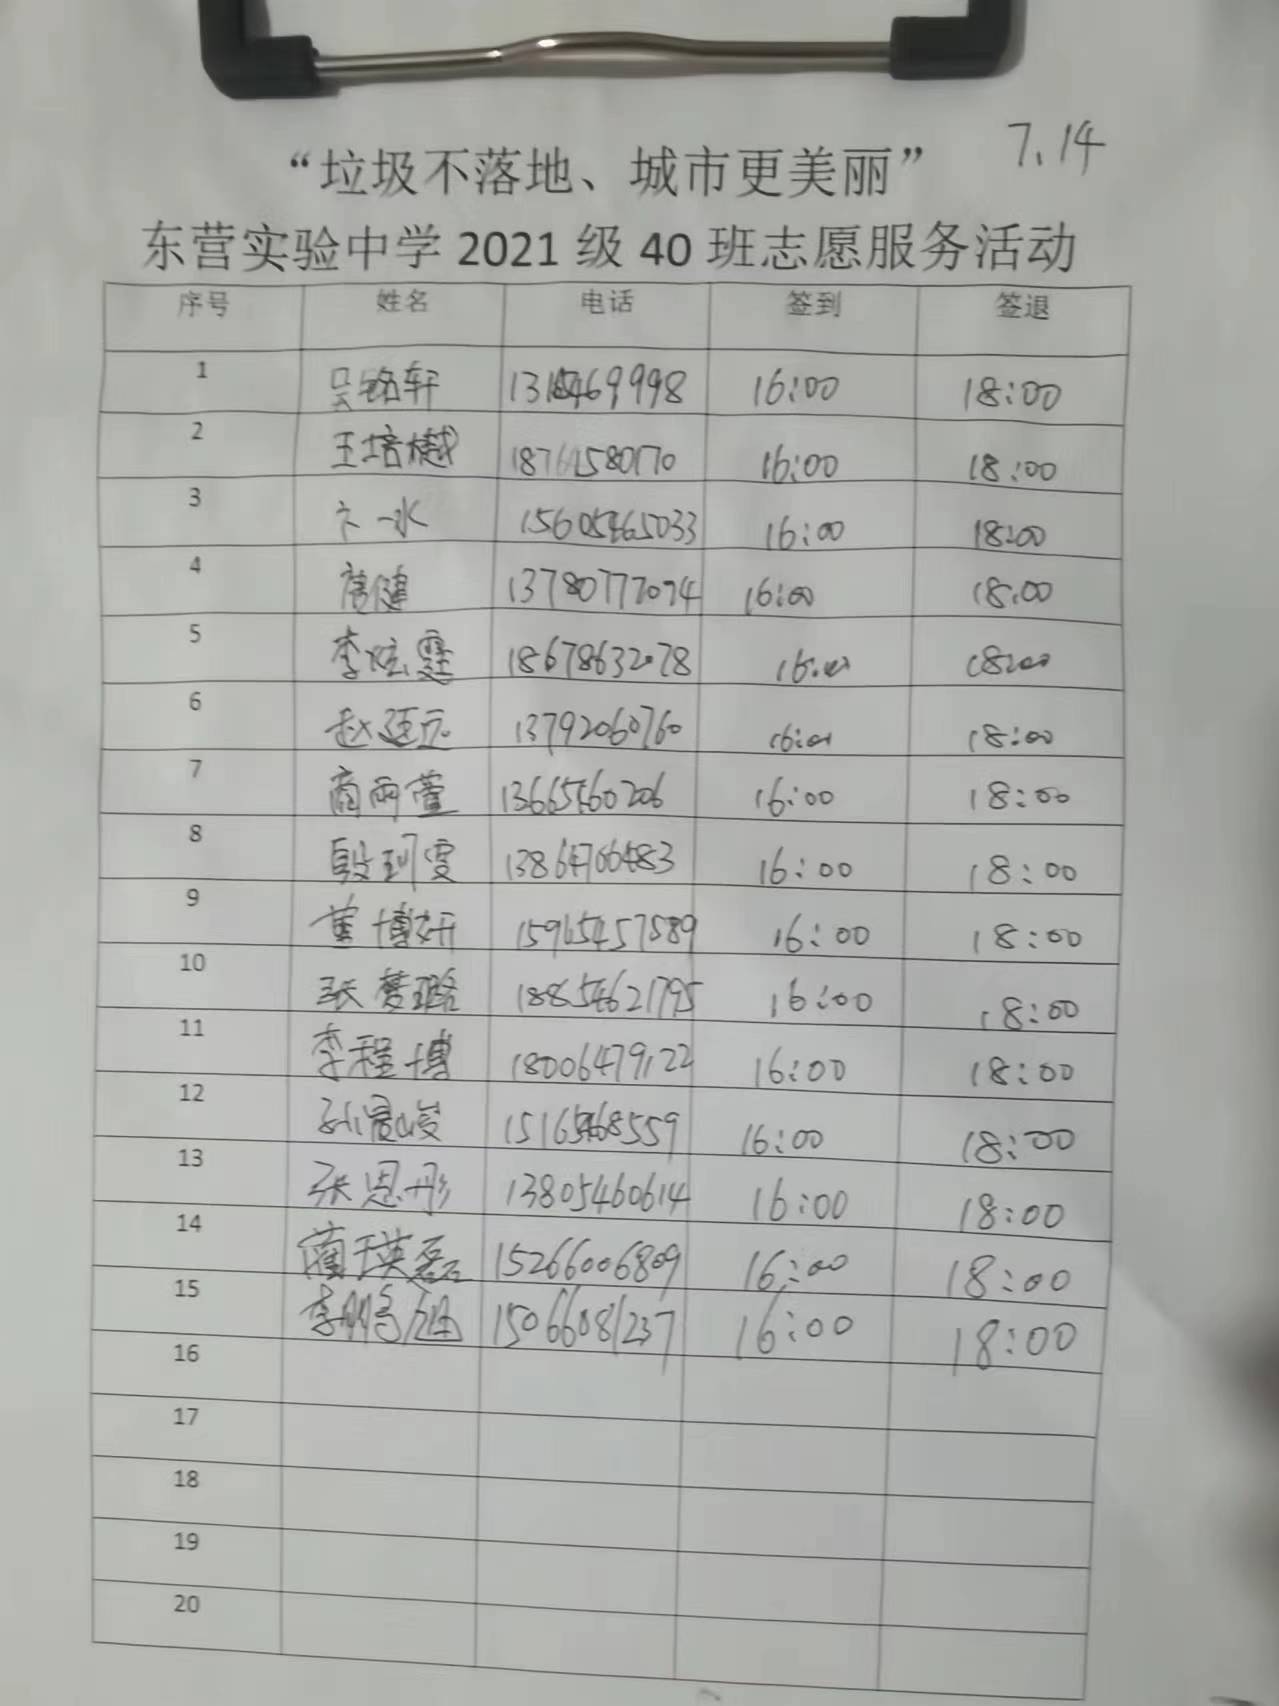 “垃圾不落地、城市更美丽” 7.14
东营实验中学 2021 级 40 班志愿服务活动
序号 姓名 电话 签到 签退
1 吴铭轩 16:00 18:00
2 王培樾 18761580170 16:00 18:00
3 卞一水 15605465033 16:00 18:00
4 唐健 13780777074 16:00 18:00
5 李炫霆 18678632078 16:00 18:00
6 赵廷元 13792060760 16:00 18:00
7 商雨萱 13665460206 16:00 18:00
8 殷玥雯 13864706483 16:00 18:00
9 董博妍 15965457589 16:00 18:00
10 张梦璐 18854621795 16:00 18:00
11 李程博 18006479122 16:00 18:00
12 孙晨峻 15165468559 16:00 18:00
13 张恩彤 13805460614 16:00 18:00
14 蔺王英磊 15266006809 16:00 18:00
15 李鹏 15066081237 16:00 18:00
16
17
18
19
20